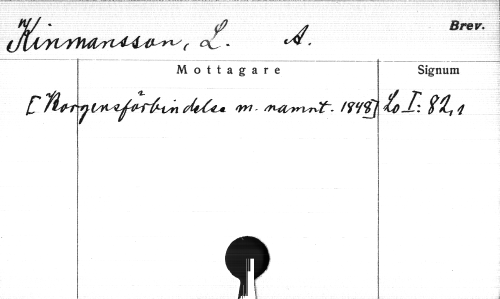 Kinmansson, L. A.
Brev.
Mottagare
Signum
[Borgensförbindelse m. namnt. 1848]
Lo I: 82,1